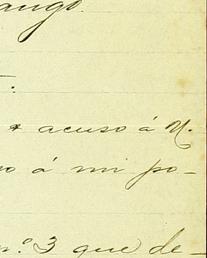 ango.
acuso á U.
o á mi po-
n.º 3 que de-